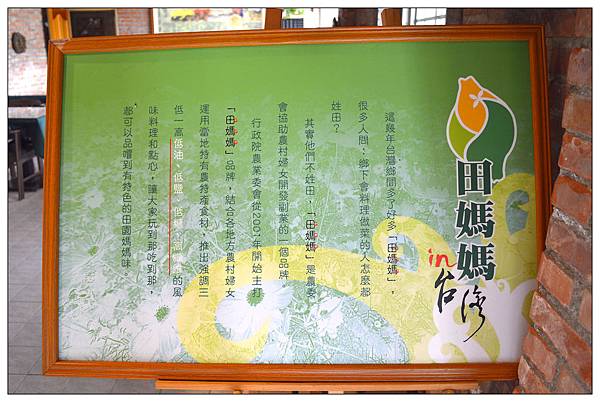 田媽媽
in
台灣
這幾年台灣鄉間多了好多「田媽媽」，
很多人問：鄉下會料理做菜的人怎麼都
姓田？
其實他們不姓田，「田媽媽」是農委
會協助農村婦女開發副業的一個品牌。
行政院農業委會從2001年開始主打
「田媽媽」品牌，結合各地方農村婦女
運用當地特有農特產食材，推出強調三
低一高低油、低鹽、低 的風
味料理和點心，讓大家玩到那吃到那，
都可以品嚐到有特色的田園媽媽味。